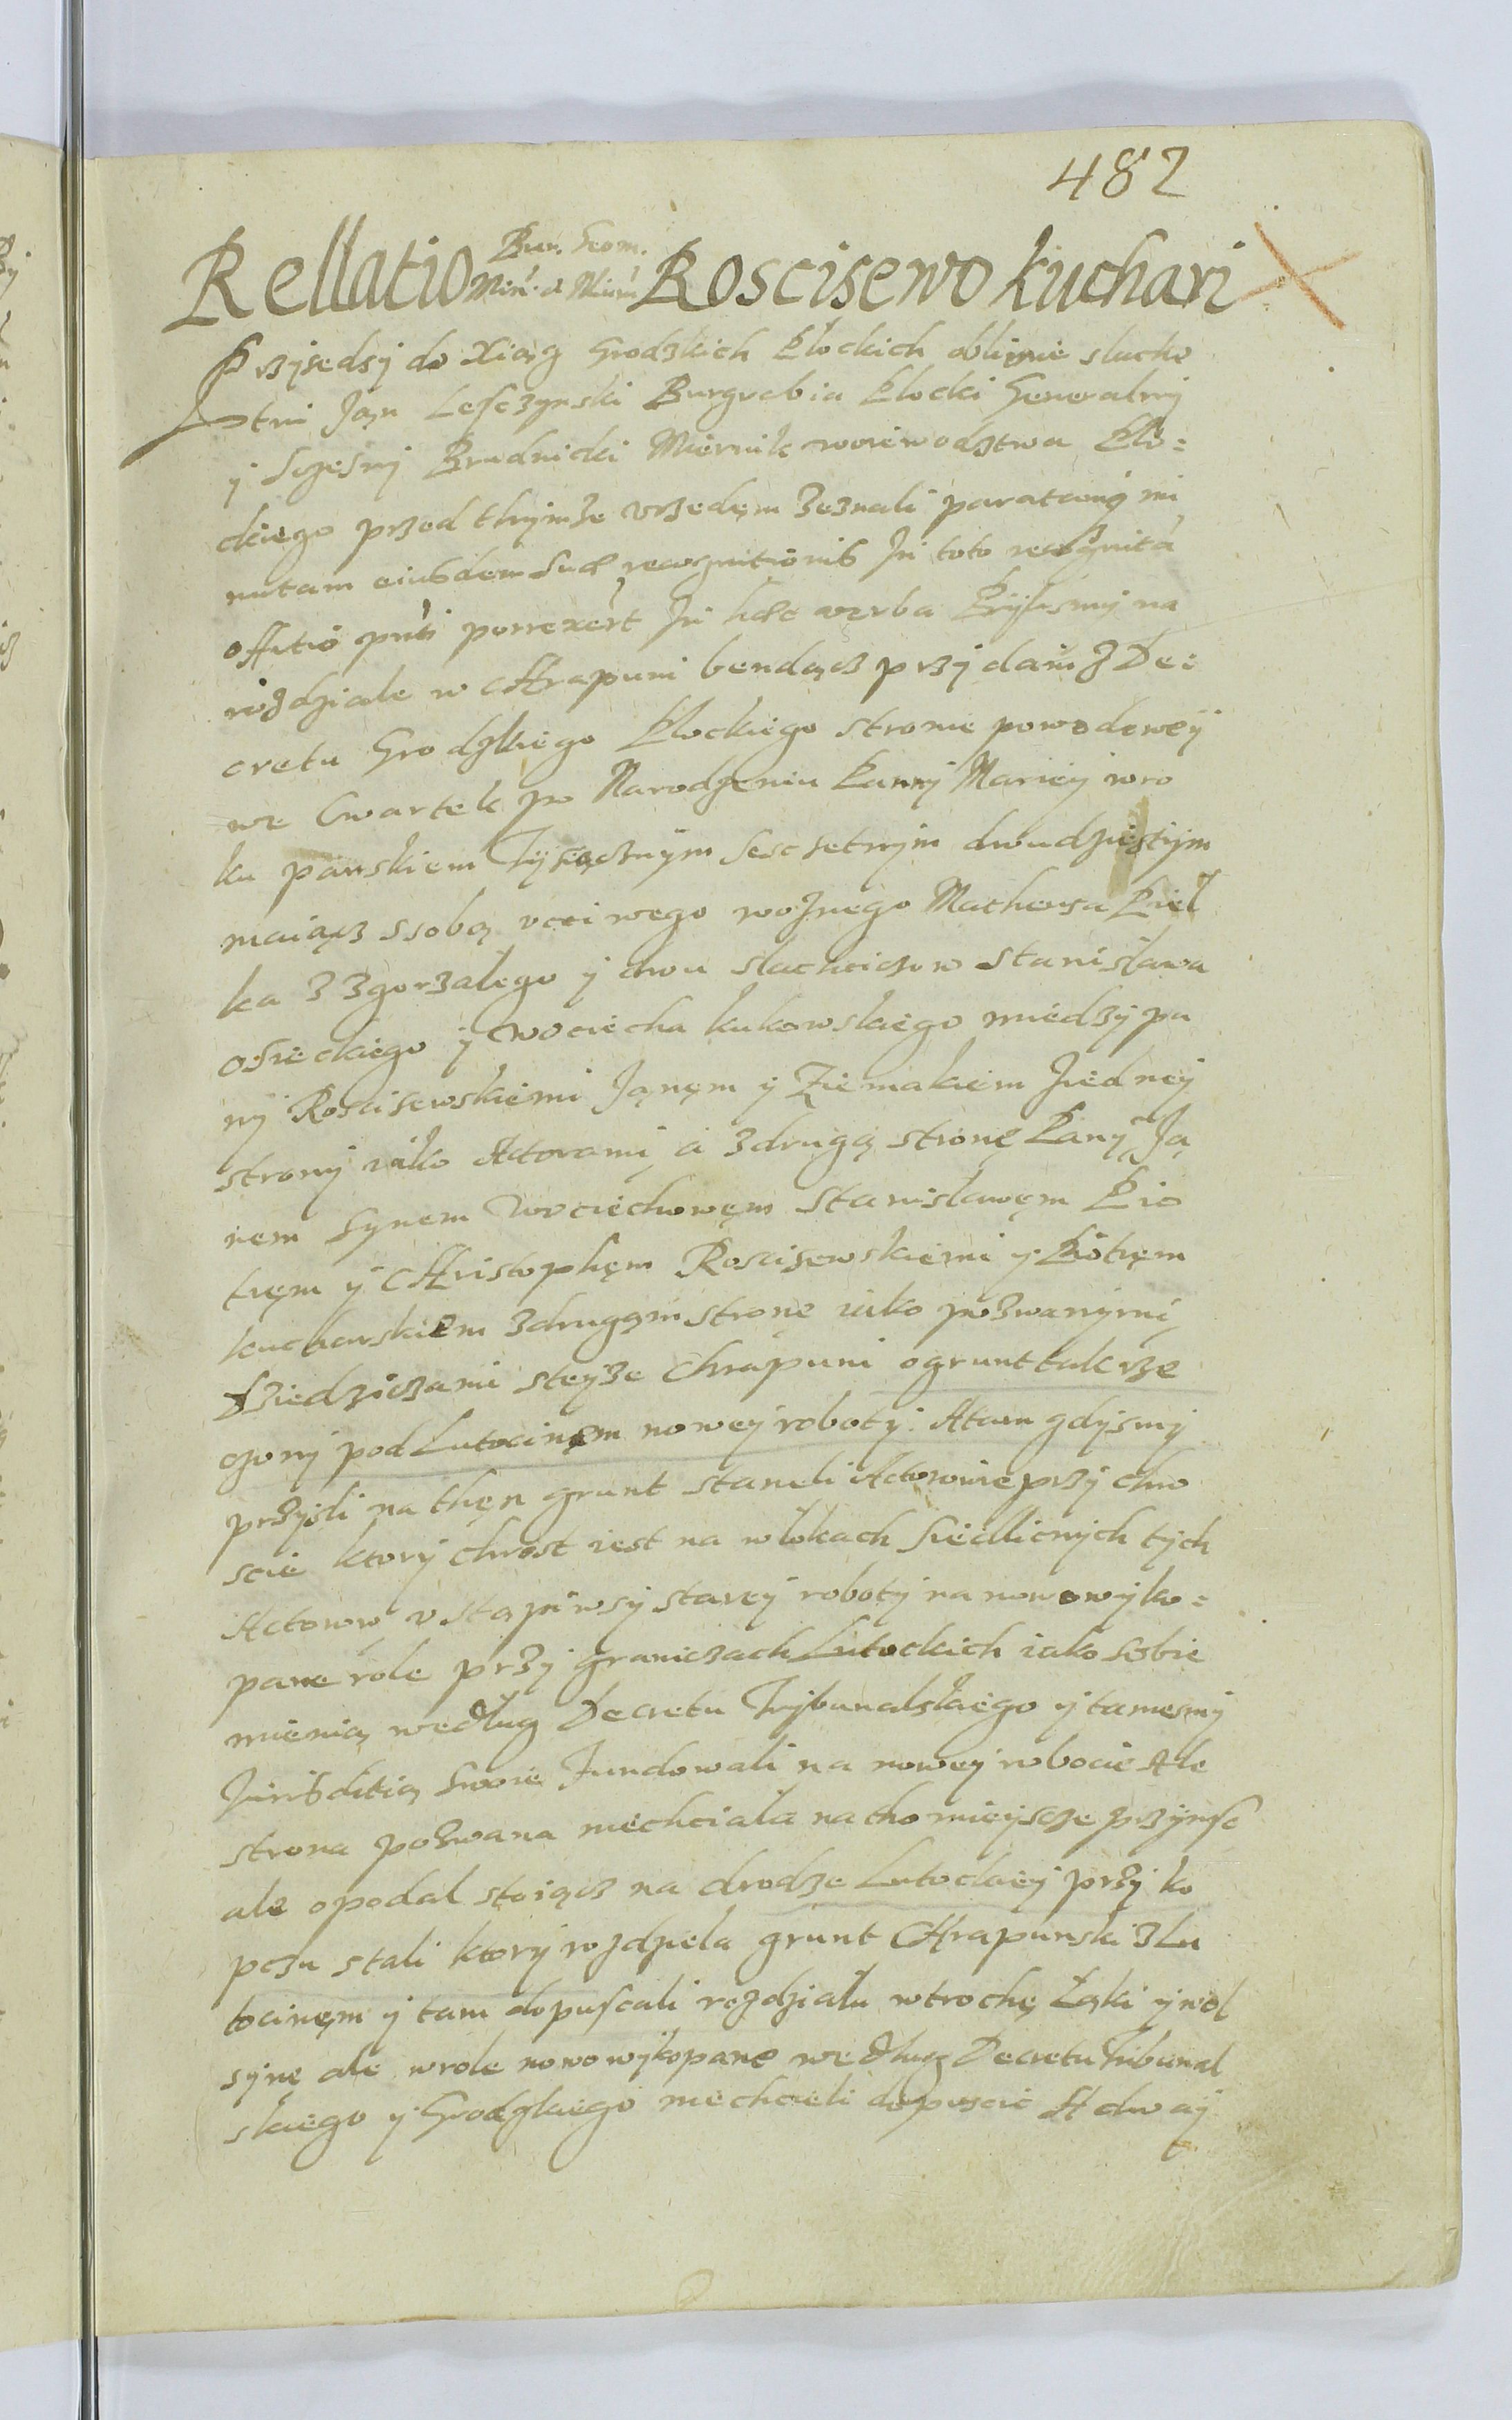 482
Rellatio Bur. Geom. Roscisewo kuchari
Przysedsy do Xiąg Grodzkich Płockich oblicznie slache
tni Jan Lesczynski Burgrabia Płocki Generalny
y Sczesny Brudnicki Miernik woiewodztwa Pło=
ckiego przed thymze vrzędem zeznali paratamq mi
nutam eiusdem suae recognitionis In toto recognita
officio pnti porrexert In haec verba Bylismy na
rozdziale w Chrapuni bendącz przydani z De=
cretu Grodzkiego Płockiego stronie powodowey
we Czwartek po Narodzeniu Panny Mariey w ro
ku panskiem Tysiącznym sescsetnym dwudziestym
maiącz ssobą vcciwego woznego Matheusa Piel
ka z Zgorzalego y dwu slachcicow Stanisława
osieckiego y Wociecha kukowskiego miedzy pa
ny Roscisewskiemi Janem y Ziemakiem Jedney
strony iako Actorami a zdrugą stronę Pany Ja
nem Synem Wociechowem Stanisławem Pio
trem y Christophem Roscisewskiemi y Piotrem
kucharskiem zdrugąm stronę iako pozwanymi
Dziedziczami steyze Chrapuni o grunt tak rze
czony pod Lutocinem nowey roboty. A tam gdysmy
przysli na then grunt staneli Actorowie przy chro
scie ktory chrost iest na włokach Siedlicnych tych
Actorow vstąpiwsy starey roboty na nowo wyko=
pane role przy graniczach Lutockich iako sobie
mienią według Decretu Trybunalskiego y tamesmy
Jurisditią swoie Fundowali na nowey robocie Ale
strona pozwana niechciala na tho mieyscze przynsc
ale opodal stoiącz na drodze Lutockiey przy ko
pczu stali ktory rozdziela grunt Chrapunski z Lu
tocinem y tam dopuscali rozdziału w trochę Łąki y w ol
synę ale w role nowo wykopane według Decretu Tribunal
skiego y Grodzkiego niechcieli dopuscic A dway